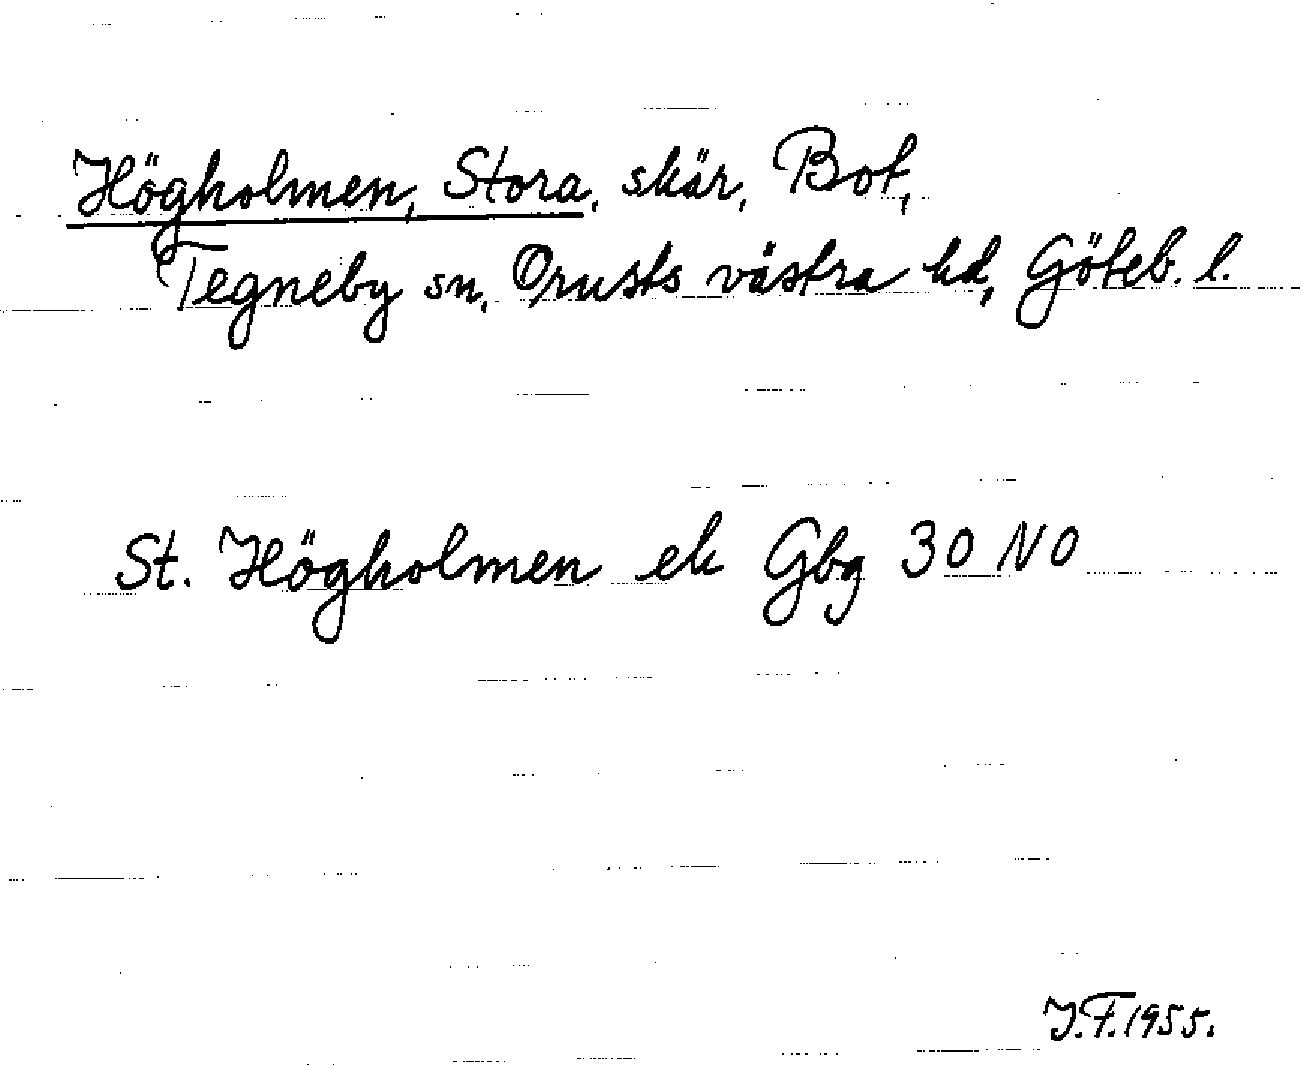 Högholmen, Stora, skär, Bot,
Tegneby sn, Orusts västra hd, Göteb. l.
St. Högholmen ek Gbg 30 NO
J.F. 1955.